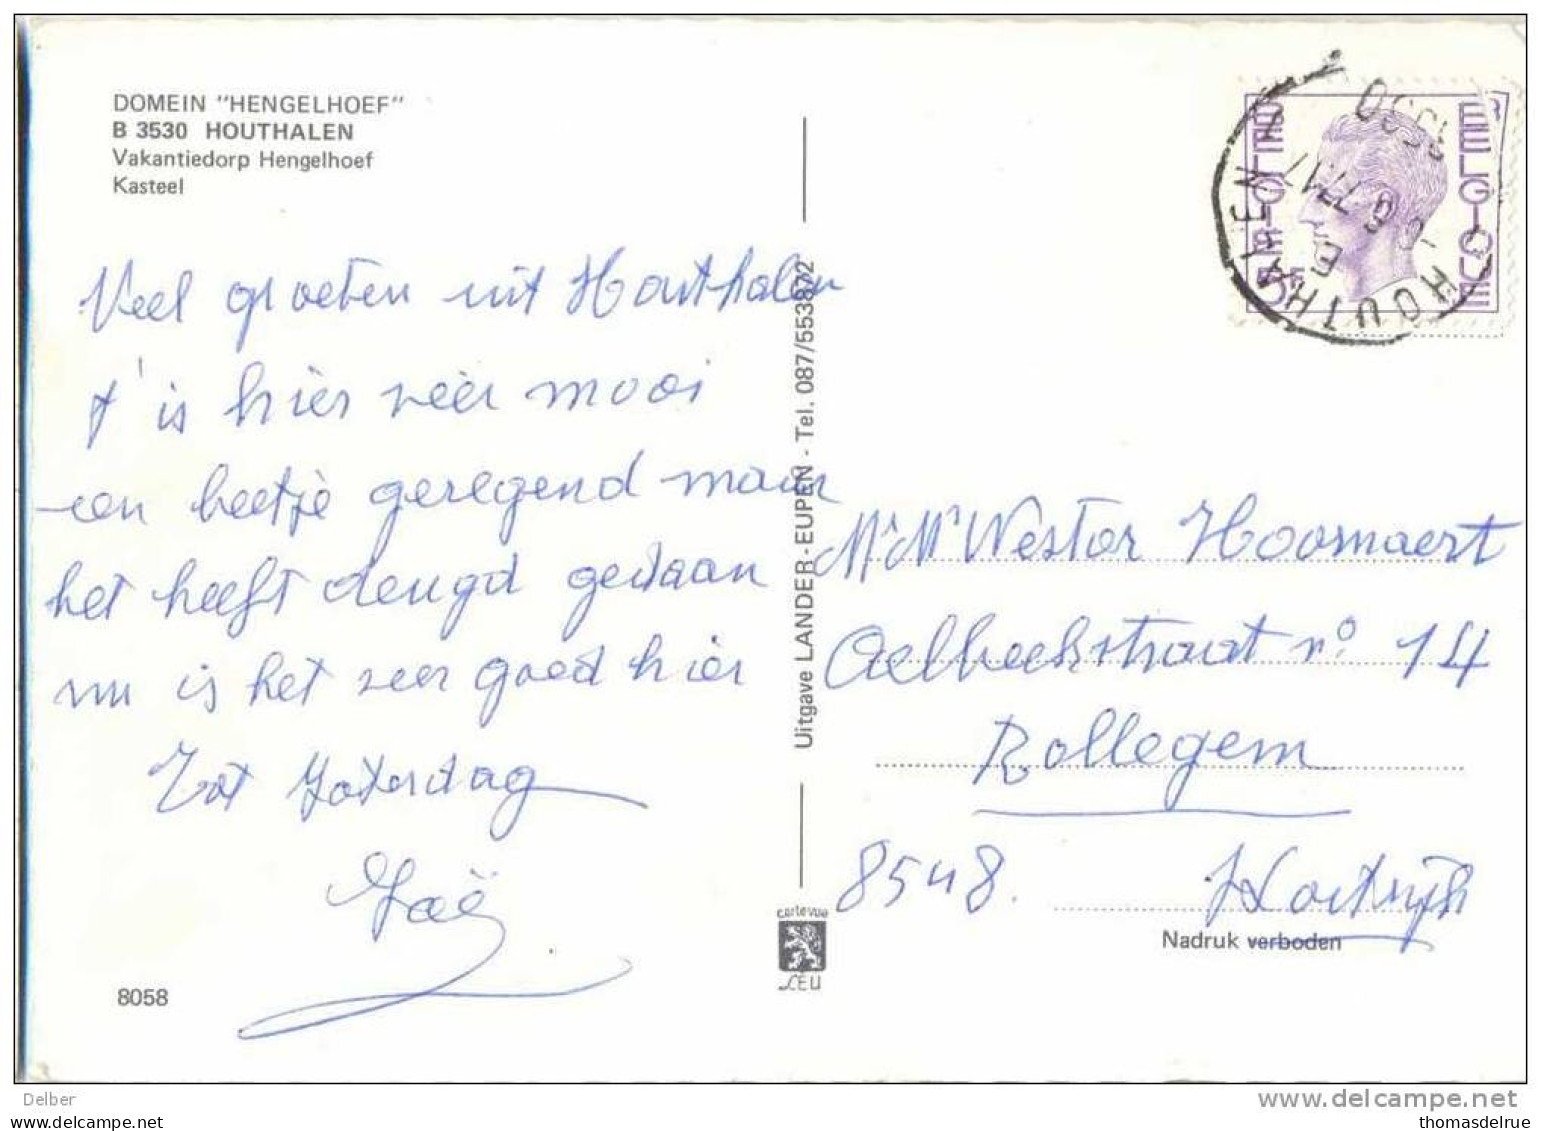 DOMEIN "HENGELHOEF"
B 3530 HOUTHALEN
Vakantiedorp Hengelhoef
Kasteel
Veel groeten uit Houthalen
t' is hier zéér mooi
een beetje geregend maar
het heeft deugd gedaan
nu is het zeer goed hier
Tot Zaterdag
8058
Uitgave LANDER-EUPEN - Tel. 087/553872
cartevue
LEU
HOUTHALEN
3530
BELGIQUE
BELGIE
Mr Mr Westor Hoornaert
Aelbeekstraat no 14
Rollegem
8548. Kortrijk
Nadruk verboden
Delber
www.delcampe.net
thomasdelrue